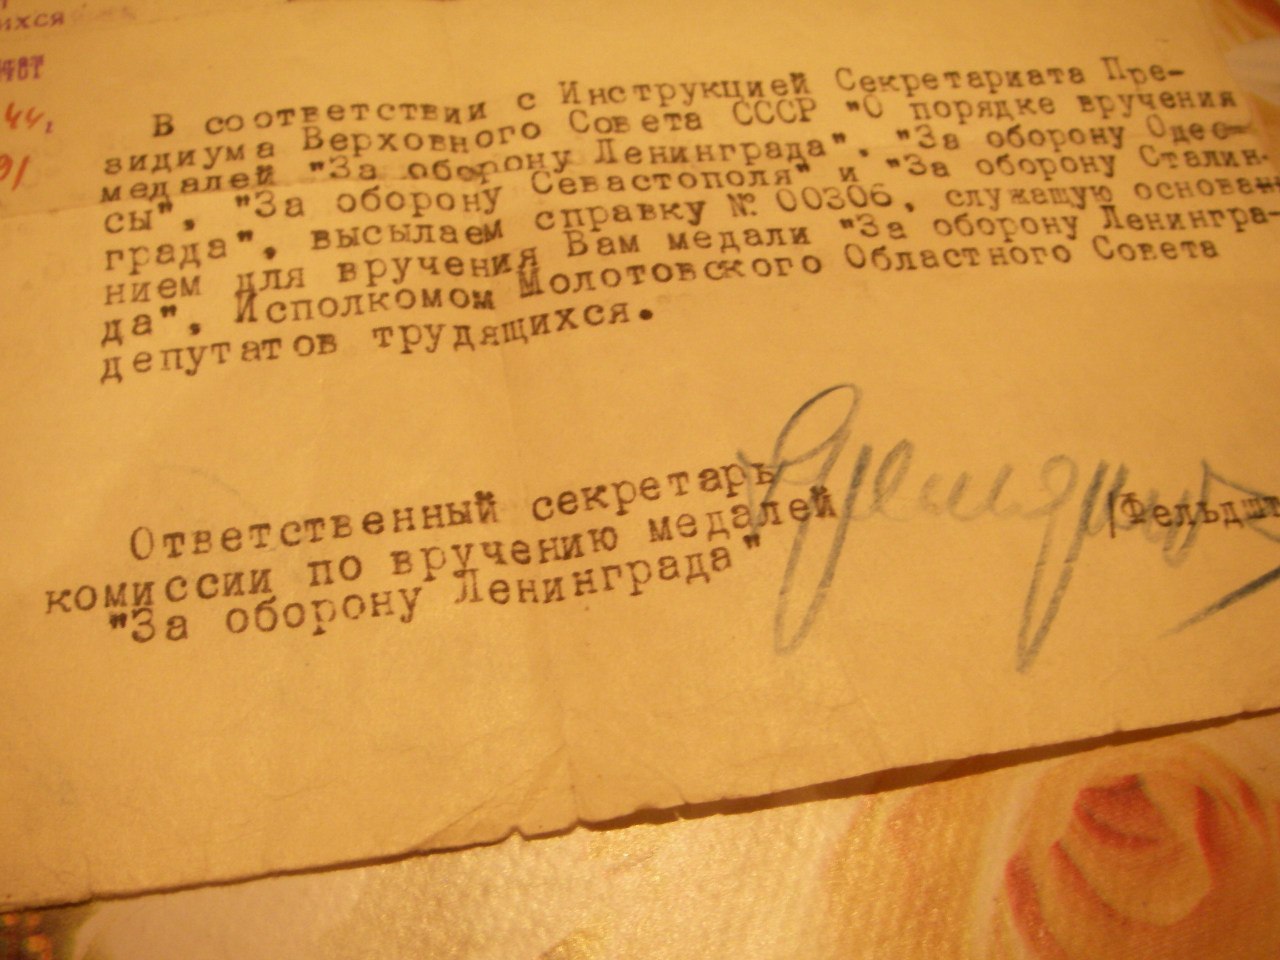 ихся
44г
91
В соответствии с Инструкцией Секретариата Пре-
зидиума Верховного Совета СССР "О порядке вручения
медалей "За оборону Ленинграда", "За оборону Одес-
сы", "За оборону Севастополя" и "За оборону Сталин-
града", высылаем справку № 00306, служащую основа
нием для вручения Вам медали "За оборону Ленингра-
да", Исполкомом Молотовского Областного Совета
депутатов трудящихся.
Ответственный секретарь
комиссии по вручению медалей
"За оборону Ленинграда"
/Фельдш